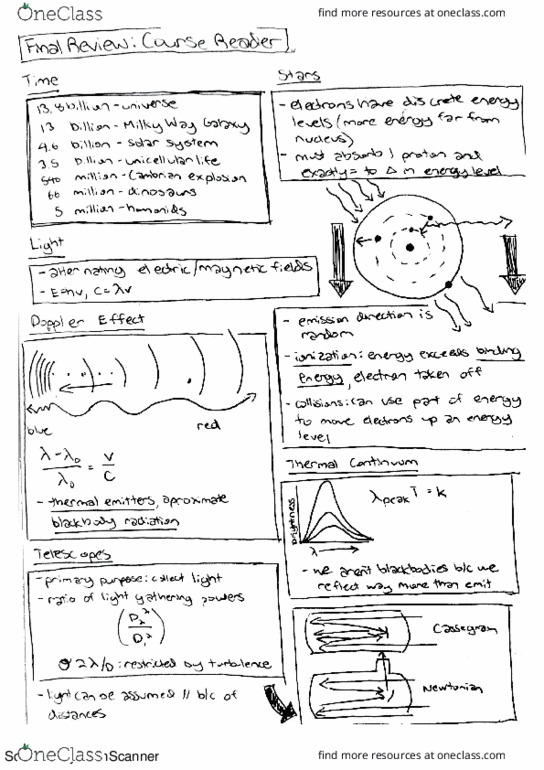 OneClass
find more resources at oneclass.com
Final Review: Course Reader
Time
13.8 billion - universe
13 billion - Milky Way Galaxy
4.6 billion - solar system
3.5 billion - unicellular life
540 million - Cambrian explosion
66 million - dinosaurs
5 million - humanids
Light
- alternating electric/magnetic fields
- E=hν, C=λν
Doppler Effect
blue
red
λ-λ₀/λ₀ = V/C
- thermal emitters, aproximate
blackbody radiation
Telescopes
- primary purpose: collect light
- ratio of light gathering powers
(D₂²/D₁²)
2λ/D: restricted by turbulence
- light can be assumed // b/c of
distances
Stars
- electrons have discrete energy
levels (more energy far from
nucleus)
- must absorb 1 proton and
exactly = to Δ in energy level
- emission direction is
random
- ionization: energy exceeds binding
energy, electron taken off
- collisions: can use part of energy
to move electrons up an energy
level
Thermal Continuum
Brightness
λ
λpeak T = k
- we aren't blackbodies b/c we
reflect way more than emit
Cassegrain
Newtonian
OneClass
Scanner
find more resources at oneclass.com